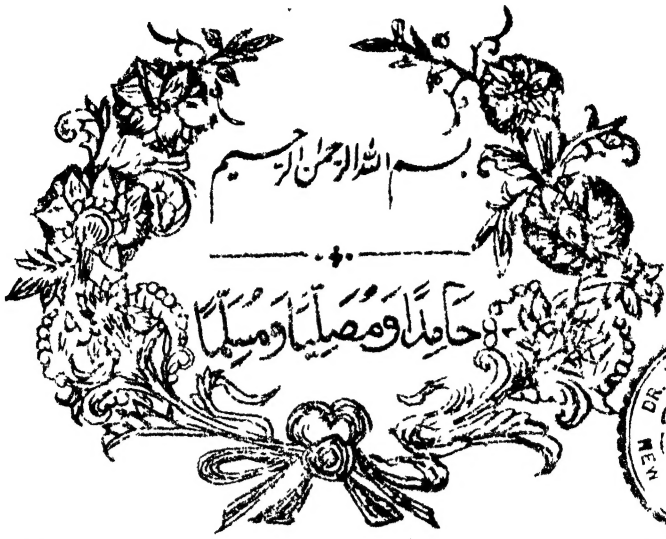 بسم الله الرحمن الرحيم
حَامِدًا وَمُصَلِّيًا وَمُسَلِّمًا
DR.
NEW